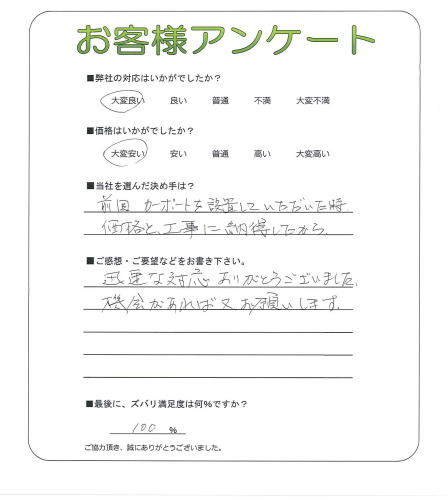 お客様アンケート
■弊社の対応はいかがでしたか?
大変良い 良い 普通 不満 大変不満
■価格はいかがでしたか?
大変安い 安い 普通 高い 大変高い
■当社を選んだ決め手は?
前回 カーポートを設置していただいた時
価格と、工事に納得したから。
■ご感想・ご要望などをお書き下さい。
迅速な対応ありがとうございました。
機会があれば又お願いします。
■最後に、ズバリ満足度は何%ですか?
100 %
ご協力頂き、誠にありがとうございました。